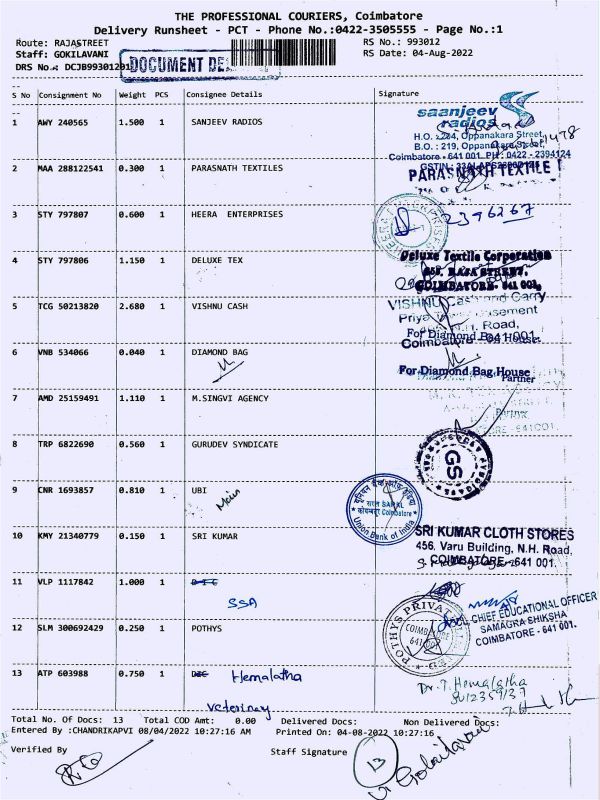 THE PROFESSIONAL COURIERS, Coimbatore
Delivery Runsheet - PCT - Phone No.:0422-3505555 - Page No.:1
Route: RAJASTREET
RS No.: 993012
Staff: GOKILAVANI
RS Date: 04-Aug-2022
DRS No.: DCJB99301201
DOCUMENT DE
S No Consignment No Weight PCS Consignee Details Signature
1 AWY 240565 1.500 1 SANJEEV RADIOS
saanjeev
radios
H.O. : 224, Oppanakara Street,
B.O. : 219, Oppanakara Street,
Coimbatore - 641 001. PH : 0422 - 2394124
2 MAA 288122541 0.300 1 PARASNATH TEXTILES
PARASNATH TEXTILE
3 STY 797807 0.600 1 HEERA ENTERPRISES
2396267
4 STY 797806 1.150 1 DELUXE TEX
Deluxe Textile Corporation
RAJA STREET,
COIMBATORE. 641 001.
5 TCG 50213820 2.680 1 VISHNU CASH
VISHNU Cash and Carry
N.H. Road,
Coimbatore - 641001
6 VNB 534066 0.040 1 DIAMOND BAG
For Diamond Bag House
For Diamond Bag House
Partner
7 AMD 25159491 1.110 1 M.SINGVI AGENCY
Partner
8 TRP 6822690 0.560 1 GURUDEV SYNDICATE
GS
9 CNR 1693857 0.810 1 UBI
Main
यूनियन बैंक ऑफ इंडिया
सरल SARAL
कोयम्बत्तूर Coimbatore
Union Bank of India
10 KMY 21340779 0.150 1 SRI KUMAR
SRI KUMAR CLOTH STORES
456, Varu Building, N.H. Road,
COIMBATORE - 641 001.
11 VLP 1117842 1.000 1
SSA
CHIEF EDUCATIONAL OFFICER
SAMAGRA SHIKSHA
COIMBATORE - 641 001.
12 SLM 300692429 0.250 1 POTHYS
POTHYS PRIVATE
COIMBATORE
13 ATP 603988 0.750 1 DEE Hemalatha
Veterinary
Dr. T. Hemalatha
Total No. Of Docs: 13 Total COD Amt: 0.00 Delivered Docs: Non Delivered Docs:
Entered By :CHANDRIKAPVI 08/04/2022 10:27:16 AM Printed On: 04-08-2022 10:27:16
Verified By
Staff Signature
13
Gokilavani